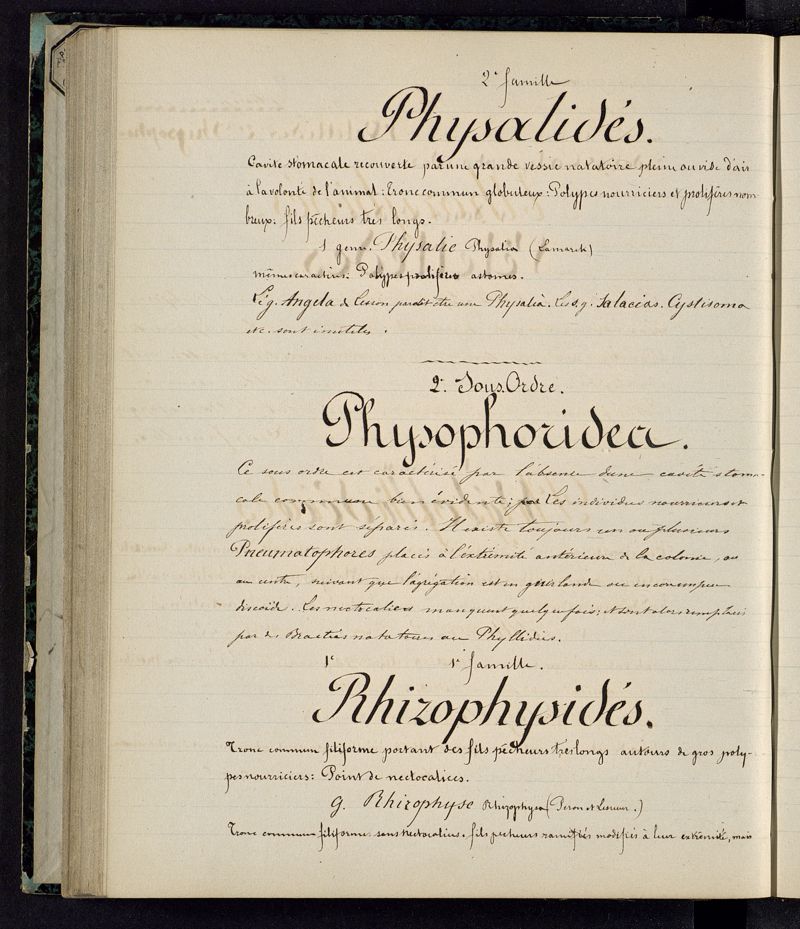 2e famille
Physalidés.
Cavité stomacale recouverte par une grande vessie natatoire pleine ou vide d'air
à la volonté de l'animal: Tronc commun globuleux: Polypes nourriciers et prolifères nom-
breux: fils pêcheurs très longs.
1 genre. Physalie Physalia (Lamarck)
mêmes caractères. Polypes prolifères astomes.
Le g. Angela de Lesson paraît être une Physalia. Les s. g. Salacia. Cystisoma
etc. sont inutiles.
2e Sous. Ordre.
Physophoridea.
Ce sous ordre est caractérisé par l'absence d'une cavité stoma-
cale commune bien évidente; Les individus nourriciers et
prolifères sont séparés. Il existe toujours un ou plusieurs
Pneumatophores placés à l'extrémité antérieure de la colonie, ou
au centre, suivant que l'agrégation est en guirlande ou en
discoïde. Les nectocalices manquent quelquefois; et sont alors remplacés
par des Bractées natatoires ou Phyllidies.
1e 1e famille.
Rhizophysidés.
Tronc commun filiforme portant des fils pêcheurs très longs autours de gros poly-
pes nourriciers: Point de nectocalices.
g. Rhizophyse Rhizophysa (Peron et Lesueur.)
Tronc commun filiforme sans nectocalices. fils pêcheurs ramifiés modifiés à leur extrémité, mais